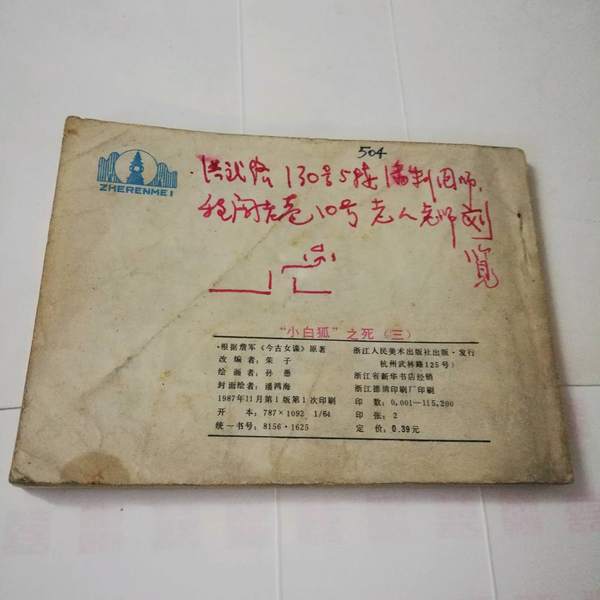 504
130号5楼
10号老人
ZHERENMEI
“小白狐”之死(三)
·根据詹军《今古女谍》原著
改编者：朱子
绘画者：孙愚
封面绘者：潘鸿海
1987年11月第1版第1次印刷
开本：787×1092 1/64
统一书号：8156·1625
浙江人民美术出版社出版·发行
杭州武林路125号)
浙江省新华书店经销
浙江德清印刷厂印刷
印数：0,001—115,200
印张：2
定价：0.39元